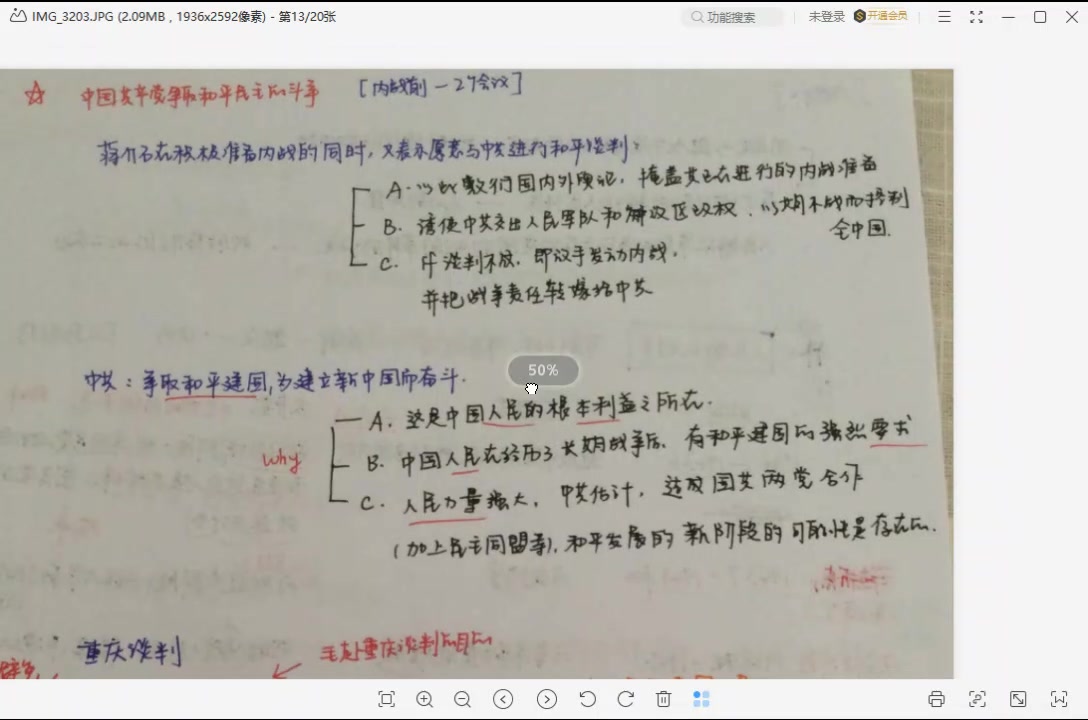 IMG_3203.JPG (2.09MB , 1936x2592像素) - 第13/20张
功能搜索
未登录
开通会员
中国共产党争取和平民主的斗争 [内战前一2个会议]
蒋介石在积极准备内战的同时，又表示愿意与中共进行和平谈判：
A. 以敷衍国内外舆论，掩盖其正在进行的内战准备
B. 诱使中共交出人民军队和解放区政权，以期不战而得到
全中国.
C. if 谈判不成，即放手发动内战，
并把战争责任转嫁给中共
50%
中共：争取和平建国，为建立新中国而奋斗.
why
A. 这是中国人民的根本利益之所在.
B. 中国人民在经历了长期战争后，有和平建国的强烈要求
C. 人民力量强大，中共估计，达成国共两党合作
(加上民主同盟等)，和平发展的新阶段的可能性是存在的.
重庆谈判
毛赴重庆谈判的目的